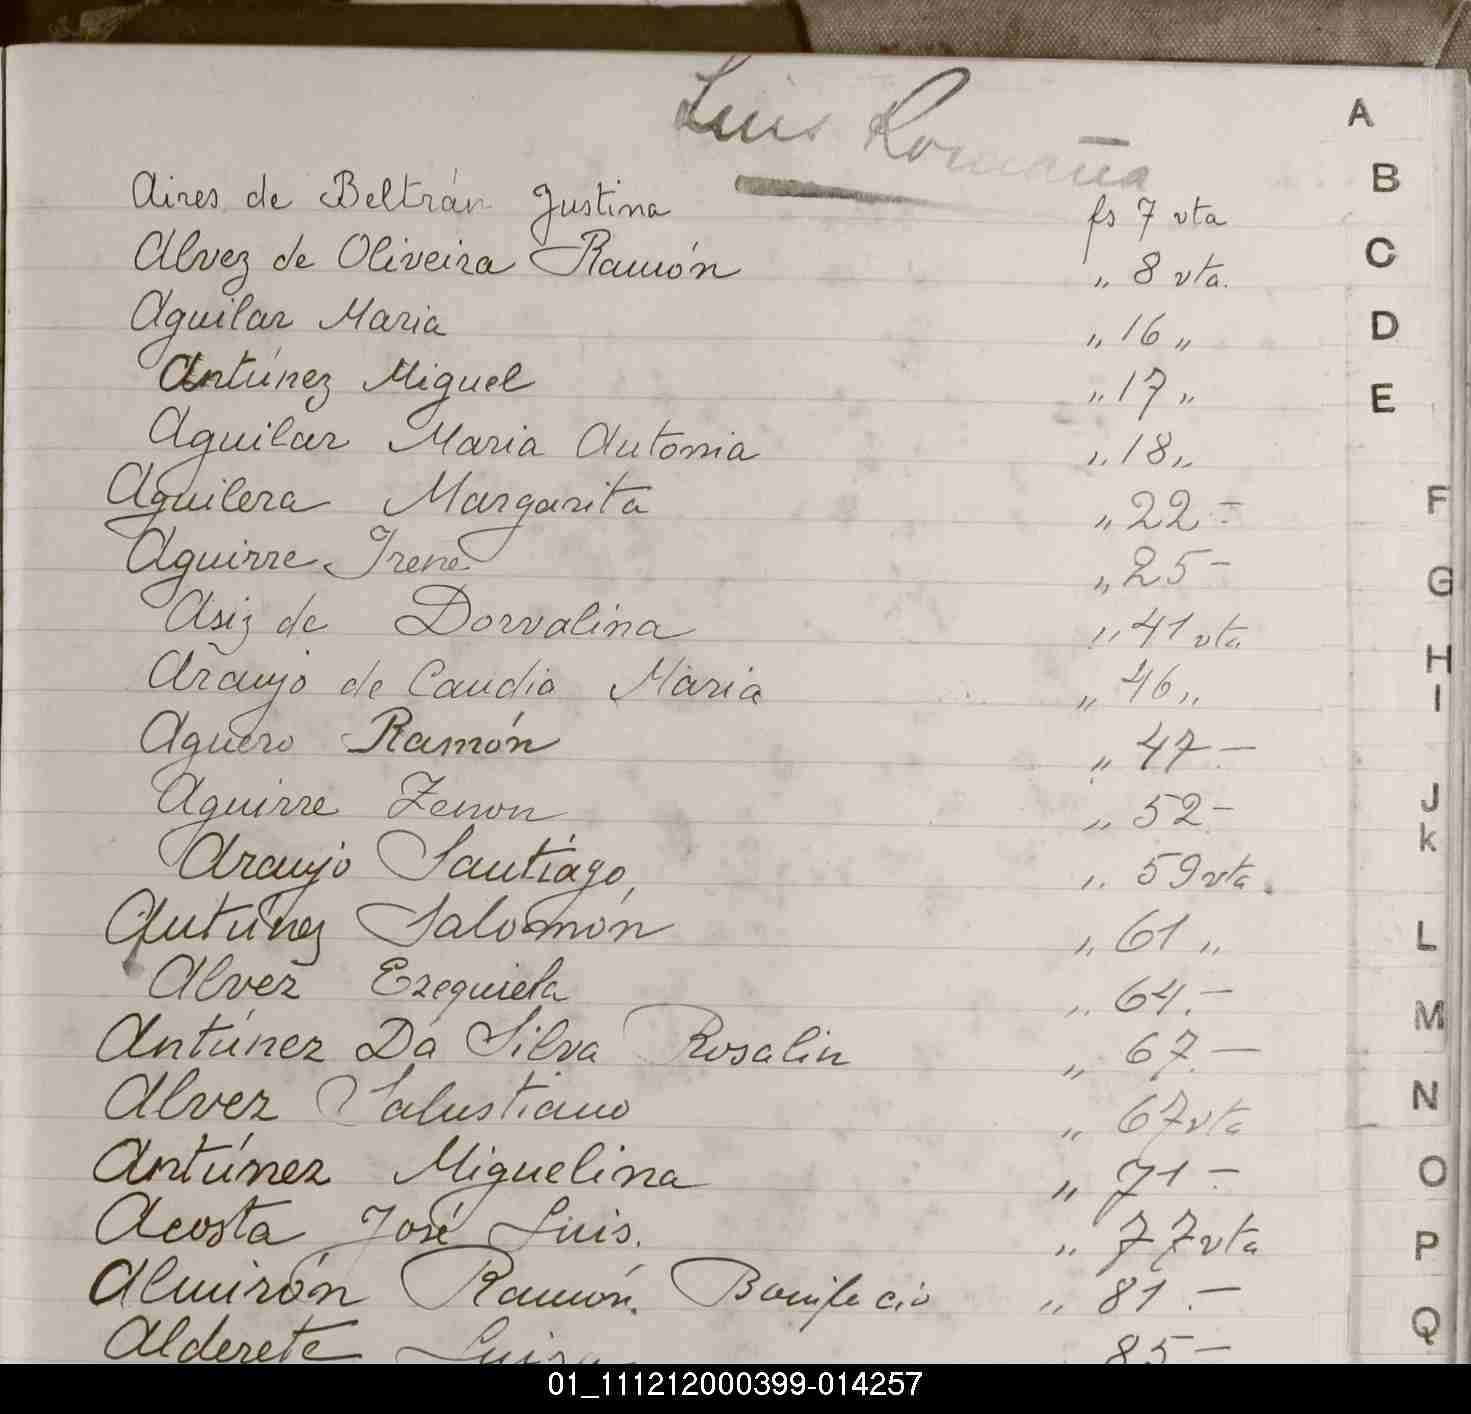 Luis Romaña
A
Aires de Beltrán Justina fs 7 vta
B
Alvez de Oliveira Ramón „ 8 vta.
C
Aguilar Maria „ 16 „
D
Antúnez Miguel „ 17 „
E
Aguilar Maria Antonia „ 18 „
Aguilera Margarita „ 22 -
F
Aguirre Irene „ 25 -
G
Asiz de Dorvalina „ 41 vta
H
Araujo de Candia Maria „ 46 „
I
Aguero Ramón „ 47 -
Aguirre Zenon „ 52 -
J
k
Araujo Santiago, „ 59 vta.
Antúnez Salomón „ 61 „
L
Alvez Ezequiela „ 64. -
M
Antúnez Da Silva Rosalin „ 67. -
Alvez Salustiano „ 67 vta
N
Antúnez Miguelina „ 71 -
O
Acosta José Luis. „ 77 vta
P
Almirón Ramón. Bonifacio „ 81 . -
Q
Alderete Luisa 85 -
01_111212000399-014257